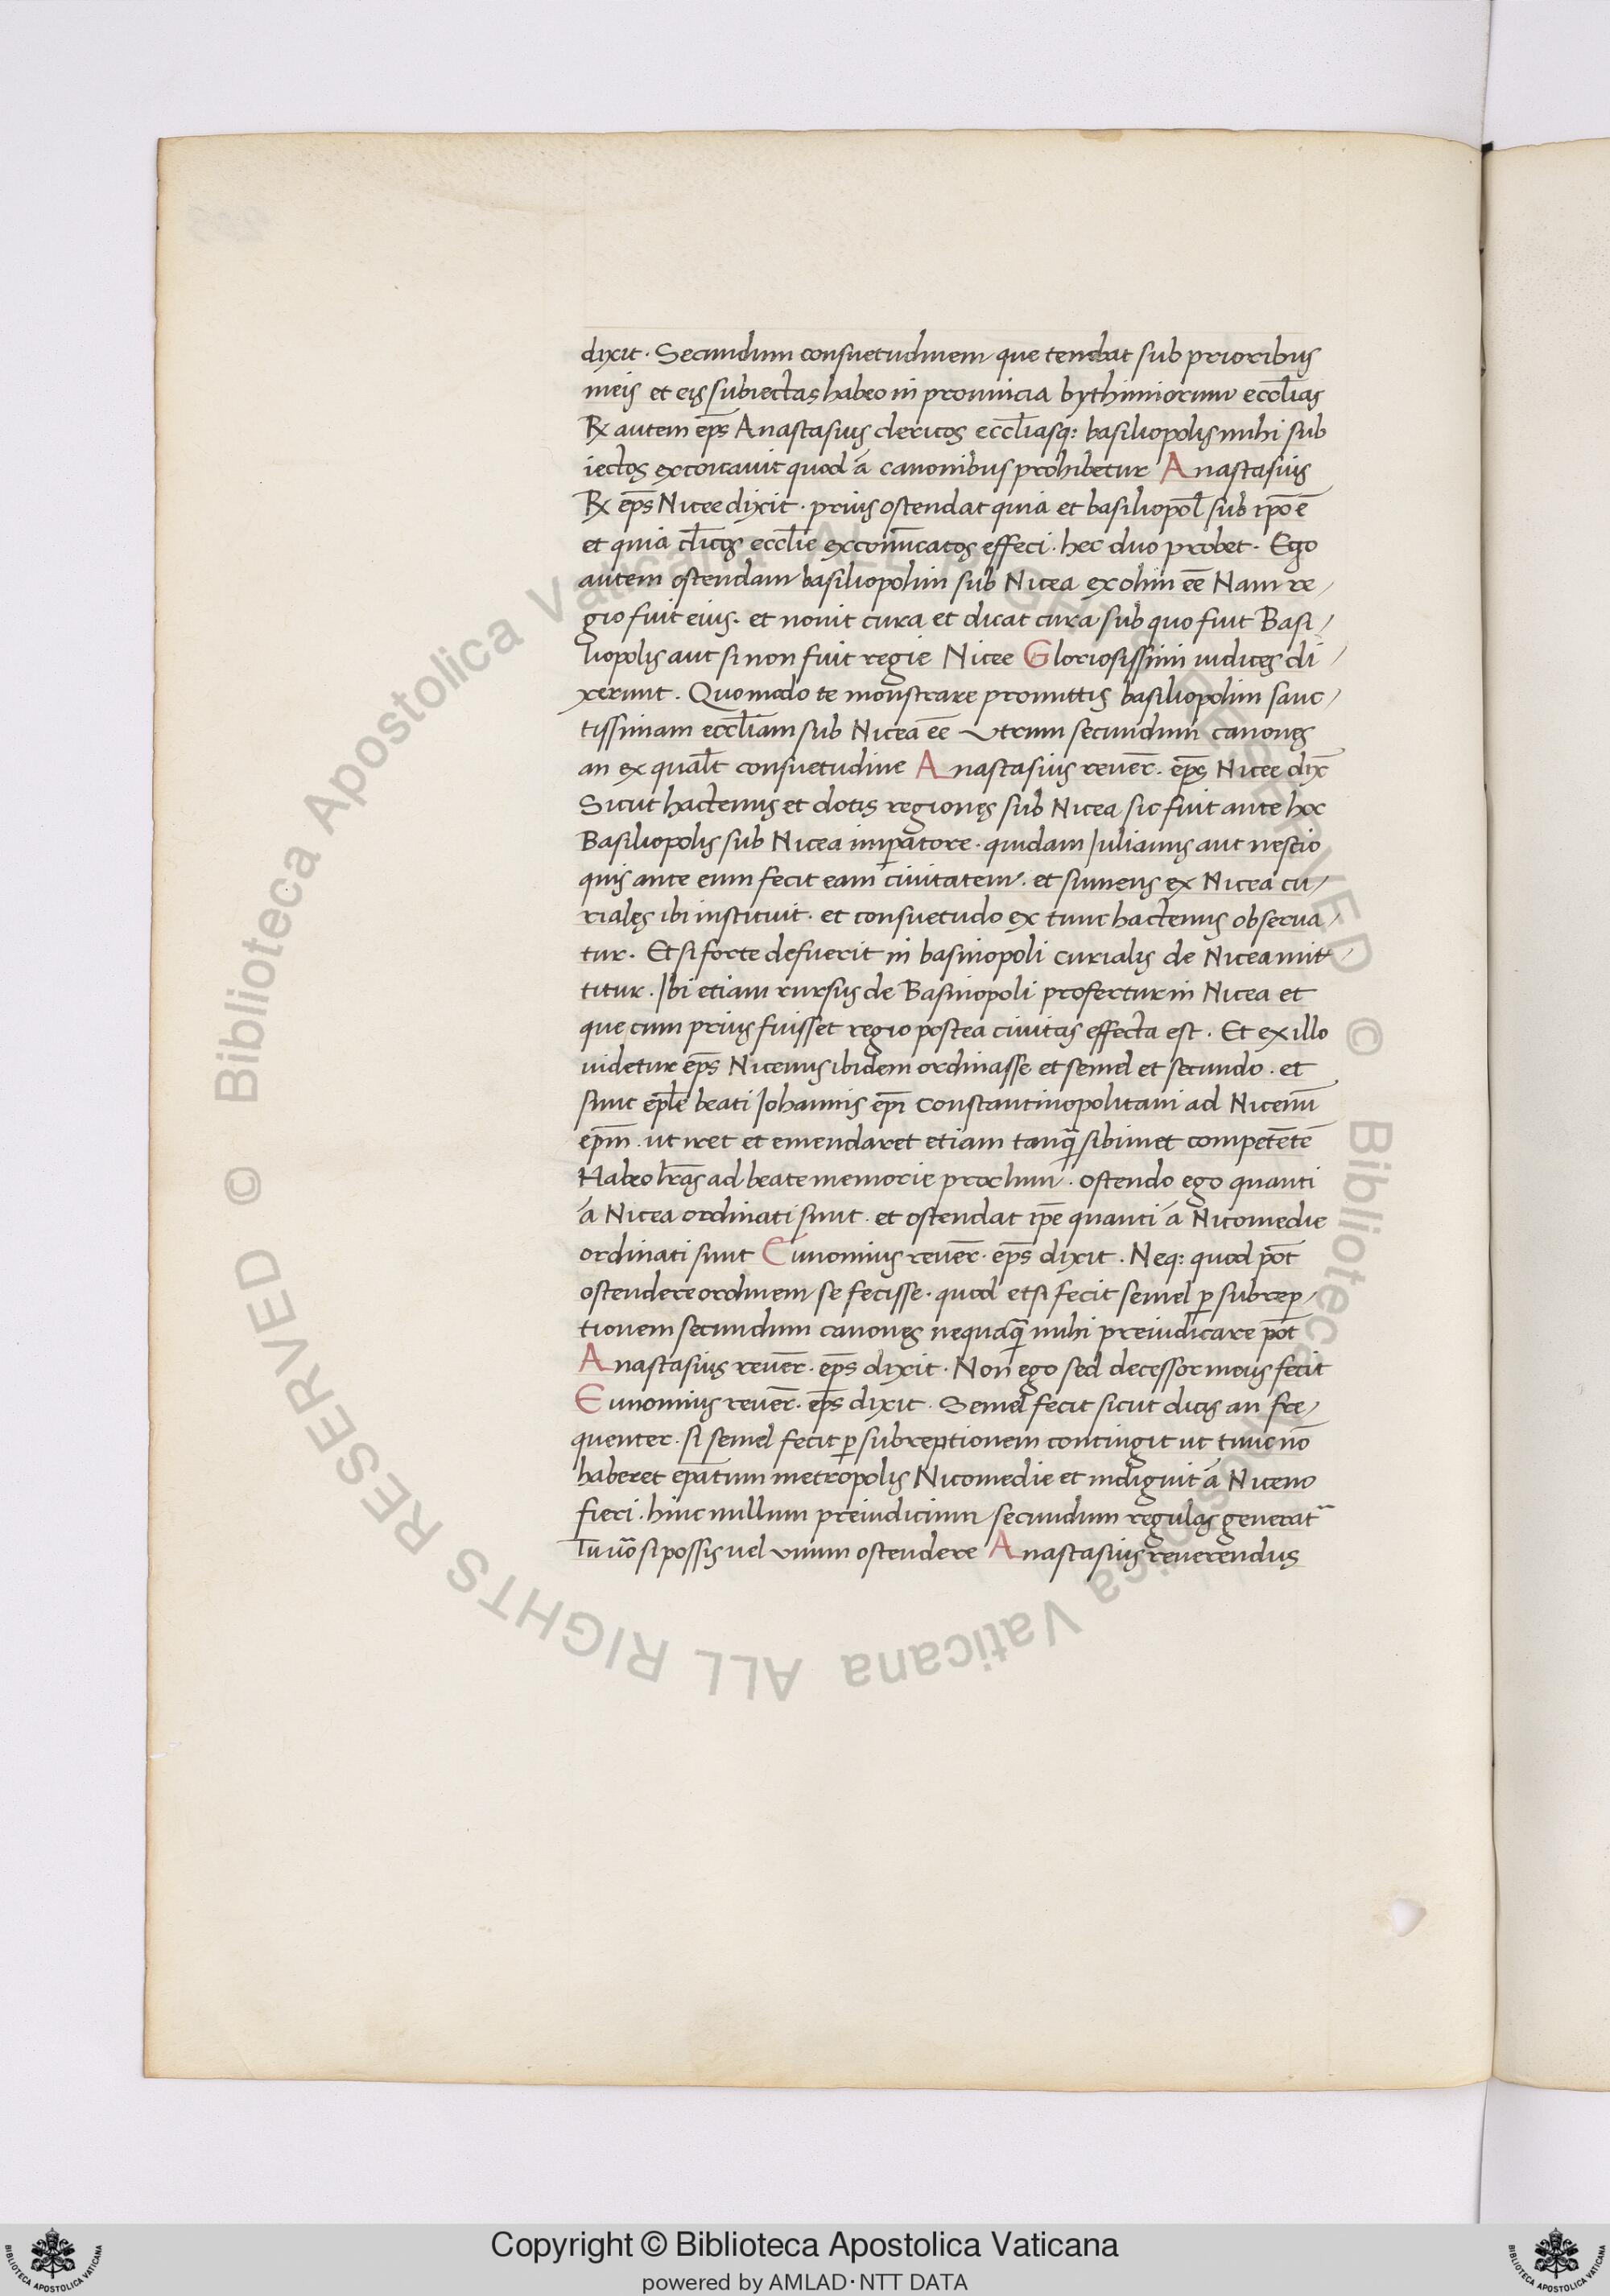 dixit. Secundum consuetudinem que tendat sub prioribus
meis et eis subiectas habeo in prouincia bythiniorum eccl̄ias
R℞ autem ep̄s Anastasius clericos eccl̄iasq: basiliopolis mihi sub
iectos excoīcauit quod á canonibus prohibetur Anastasius
R℞ ep̄s Nicee dixit. prius ostendat quia et basiliopol̄ sub ip̄o ē
et quia cl̄icos eccl̄ie excom̄icatos effeci. hec duo probet. Ego
autem ostendam basiliopolim sub Nicea ex olim ēē Nam re/
gio fuit eius. et nouit cura et dicat cura sub quo fuit Basi/
liopolis aut si non fuit regie Nicee Gloriosissimi iudices di/
xerunt. Quomodo te monstrare promittis basiliopolim sanc/
tissimam eccl̄iam sub Nicea ēē Utrum secundum canones
an ex qual̄t consuetudine Anastasius reuer̄. ep̄s Nicee dix̄
Sicut hactenus et dotis regiones sub Nicea sic fuit ante hoc
Basiliopolis sub Nicea imp̄atore. quidam Iulianus aut nescio
quis ante eum fecit eam ciuitatem. et sumens ex Nicea cu/
riales ibi instituit. et consuetudo ex tunc hactenus obserua/
tur. Et si forte defuerit in basinopoli curialis de Nicea mit/
titur. Ibi etiam rursus de Basinopoli profertur in Nicea et
que cum prius fuisset regio postea ciuitas effecta est. Et ex illo
uidetur ep̄s Nicenus ibidem ordinasse et semel et secundo. et
sunt ep̄le beati Iohannis ep̄i Constantinopolitani ad Nicenū
ep̄m. ut iret et emendaret etiam tanq̄ sibimet competētē
Habeo l̄ras ad beate memorie proclum. ostendo ego quanti
á Nicea ordinati sunt. et ostendat ip̄e quanti á Nicomedie
ordinati sunt Eunomius reuer̄. ep̄s dixit. Neq: quod pōt
ostendere ordinem se fecisse. quod etsi fecit semel p̱ subrep/
tionem secundum canones nequaq̄ mihi preiudicare pōt
Anastasius reuer̄. ep̄s dixit. Non ego sed decessor meus fecit
Eunomius reuer̄. ep̄s dixit. Semel fecit sicut dicis an fre/
quenter. si semel fecit p̱ subreptionem contingit ut tunc nō
haberet ep̄atum metropolis Nicomedie et indiguit á Niceno
fieri. hinc nullum preiudicium secundum regulas generat
Tu ūo si possis uel unum ostendere Anastasius reuerendus
Copyright © Biblioteca Apostolica Vaticana
powered by AMLAD·NTT DATA